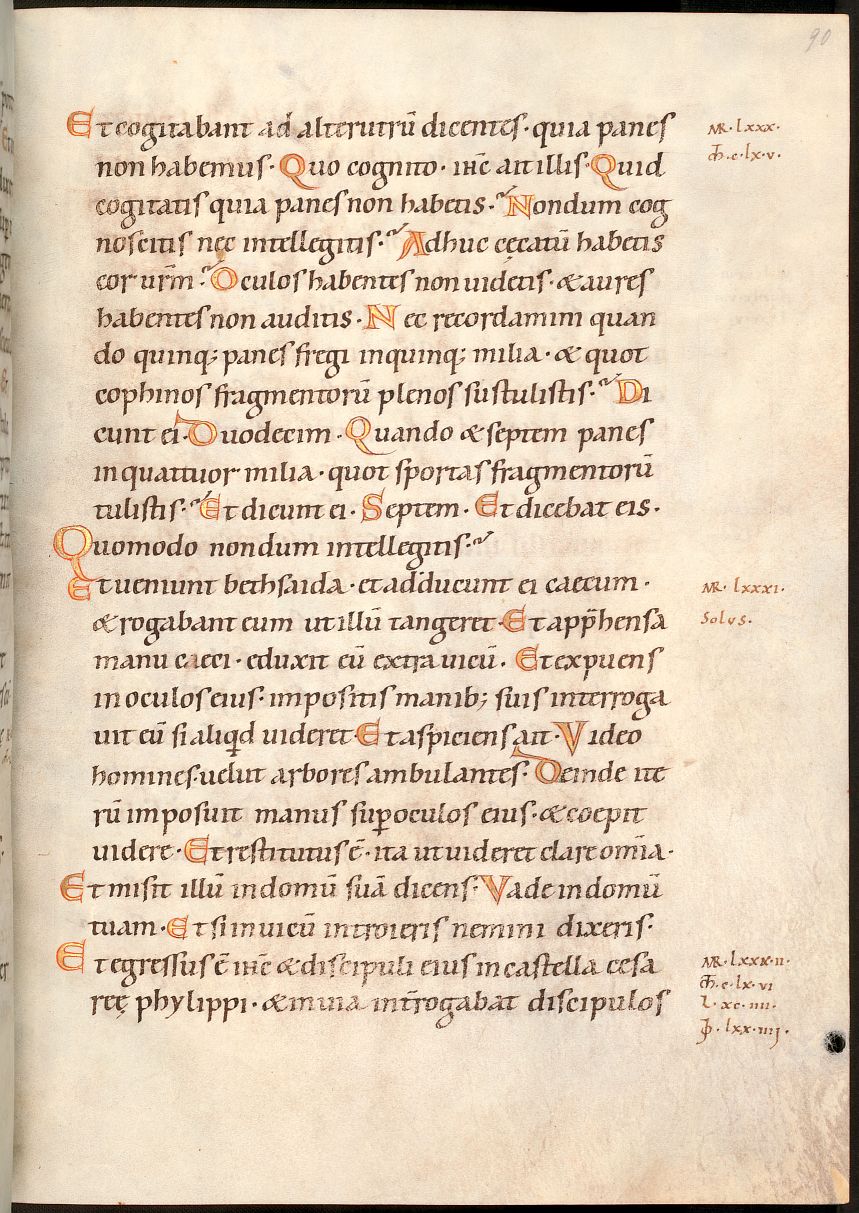 90
Et cogitabant ad alterutrū dicentes· quia panes
MR· lxxx·
non habemus· Quo cognito· ihc̄ ait illis· Quid
cogitatis quia panes non habetis· Nondum cog
noscitis nec intellegitis· Adhuc cęcatū habetis
cor ur̄m· Oculos habentes non uidetis· & aures
habentes non auditis· Nec recordamini quan
do quinq; panes fregi in quinq; milia· & quot
cophinos fragmentorū plenos sustulistis· Di
cunt ei· Duodecim· Quando & septem panes
in quattuor milia· quot sportas fragmentorū
tulistis· Et dicunt ei· Septem· Et dicebat eis·
Quomodo nondum intellegitis·
Et ueniunt bethsaida· et adducunt ei caecum·
MR· lxxxi·
& rogabant eum ut illū tangeret· Et app̄hensa
Solus·
manu caeci· eduxit eū extra uicū· Et expuens
in oculos eius· impositis manib; suis interroga
uit eū si aliqd uideret· Et aspiciens ait· Video
homines uelut arbores ambulantes· Deinde ite
rū imposuit manus suꝑ oculos eius· & coepit
uidere· Et restitutus ē· ita ut uideret clare om̄ia·
Et misit illū in domū suā dicens· Vade in domū
tuam· Et si in uicū introieris nemini dixeris·
Et egressus ē ihc̄ & discipuli eius in castella cesa
MR· lxxx·ii·
reę phylippi· & in uia int̄rogabat discipulos
l· xc· iiii·